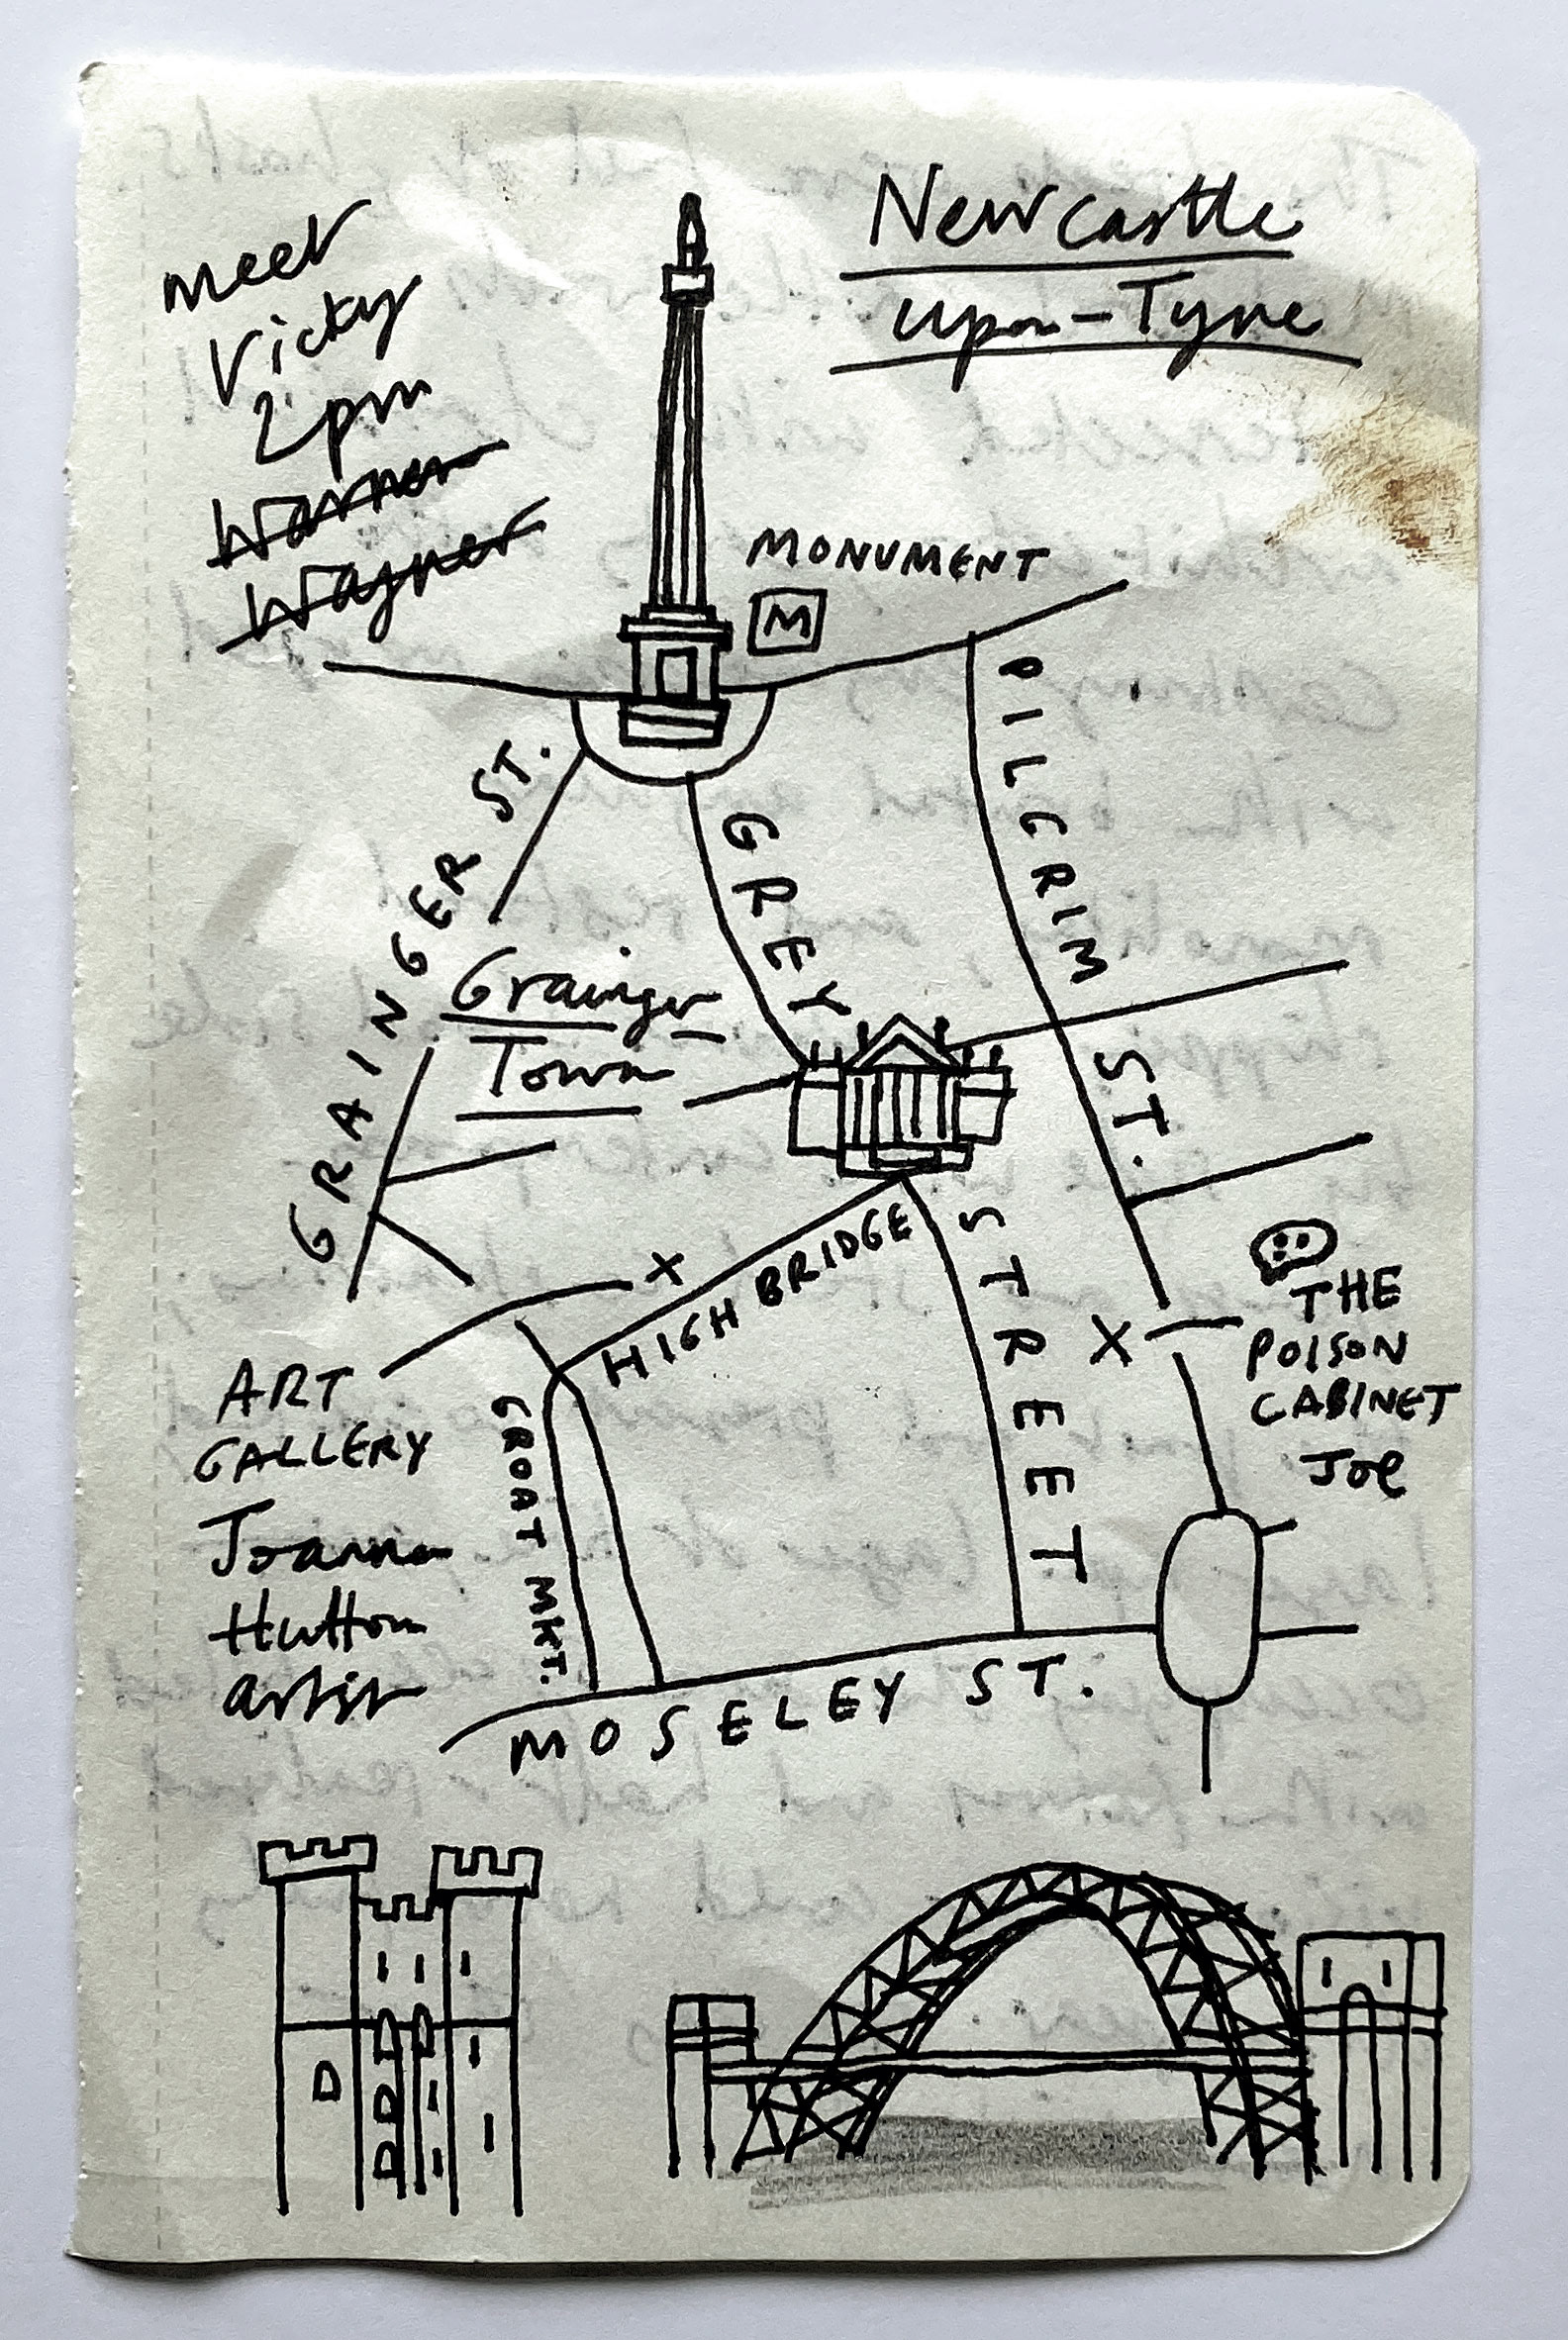 Newcastle
upon-Tyne
meet
Vicky
2pm
Warner
Wagner
MONUMENT
M
PILGRIM ST.
GRAINGER ST.
GREY STREET
Grainger
Town
HIGH BRIDGE
X
X
THE
POISON
CABINET
Joe
ART
GALLERY
Joanna
Hutton
artist
GROAT MKT.
MOSELEY ST.